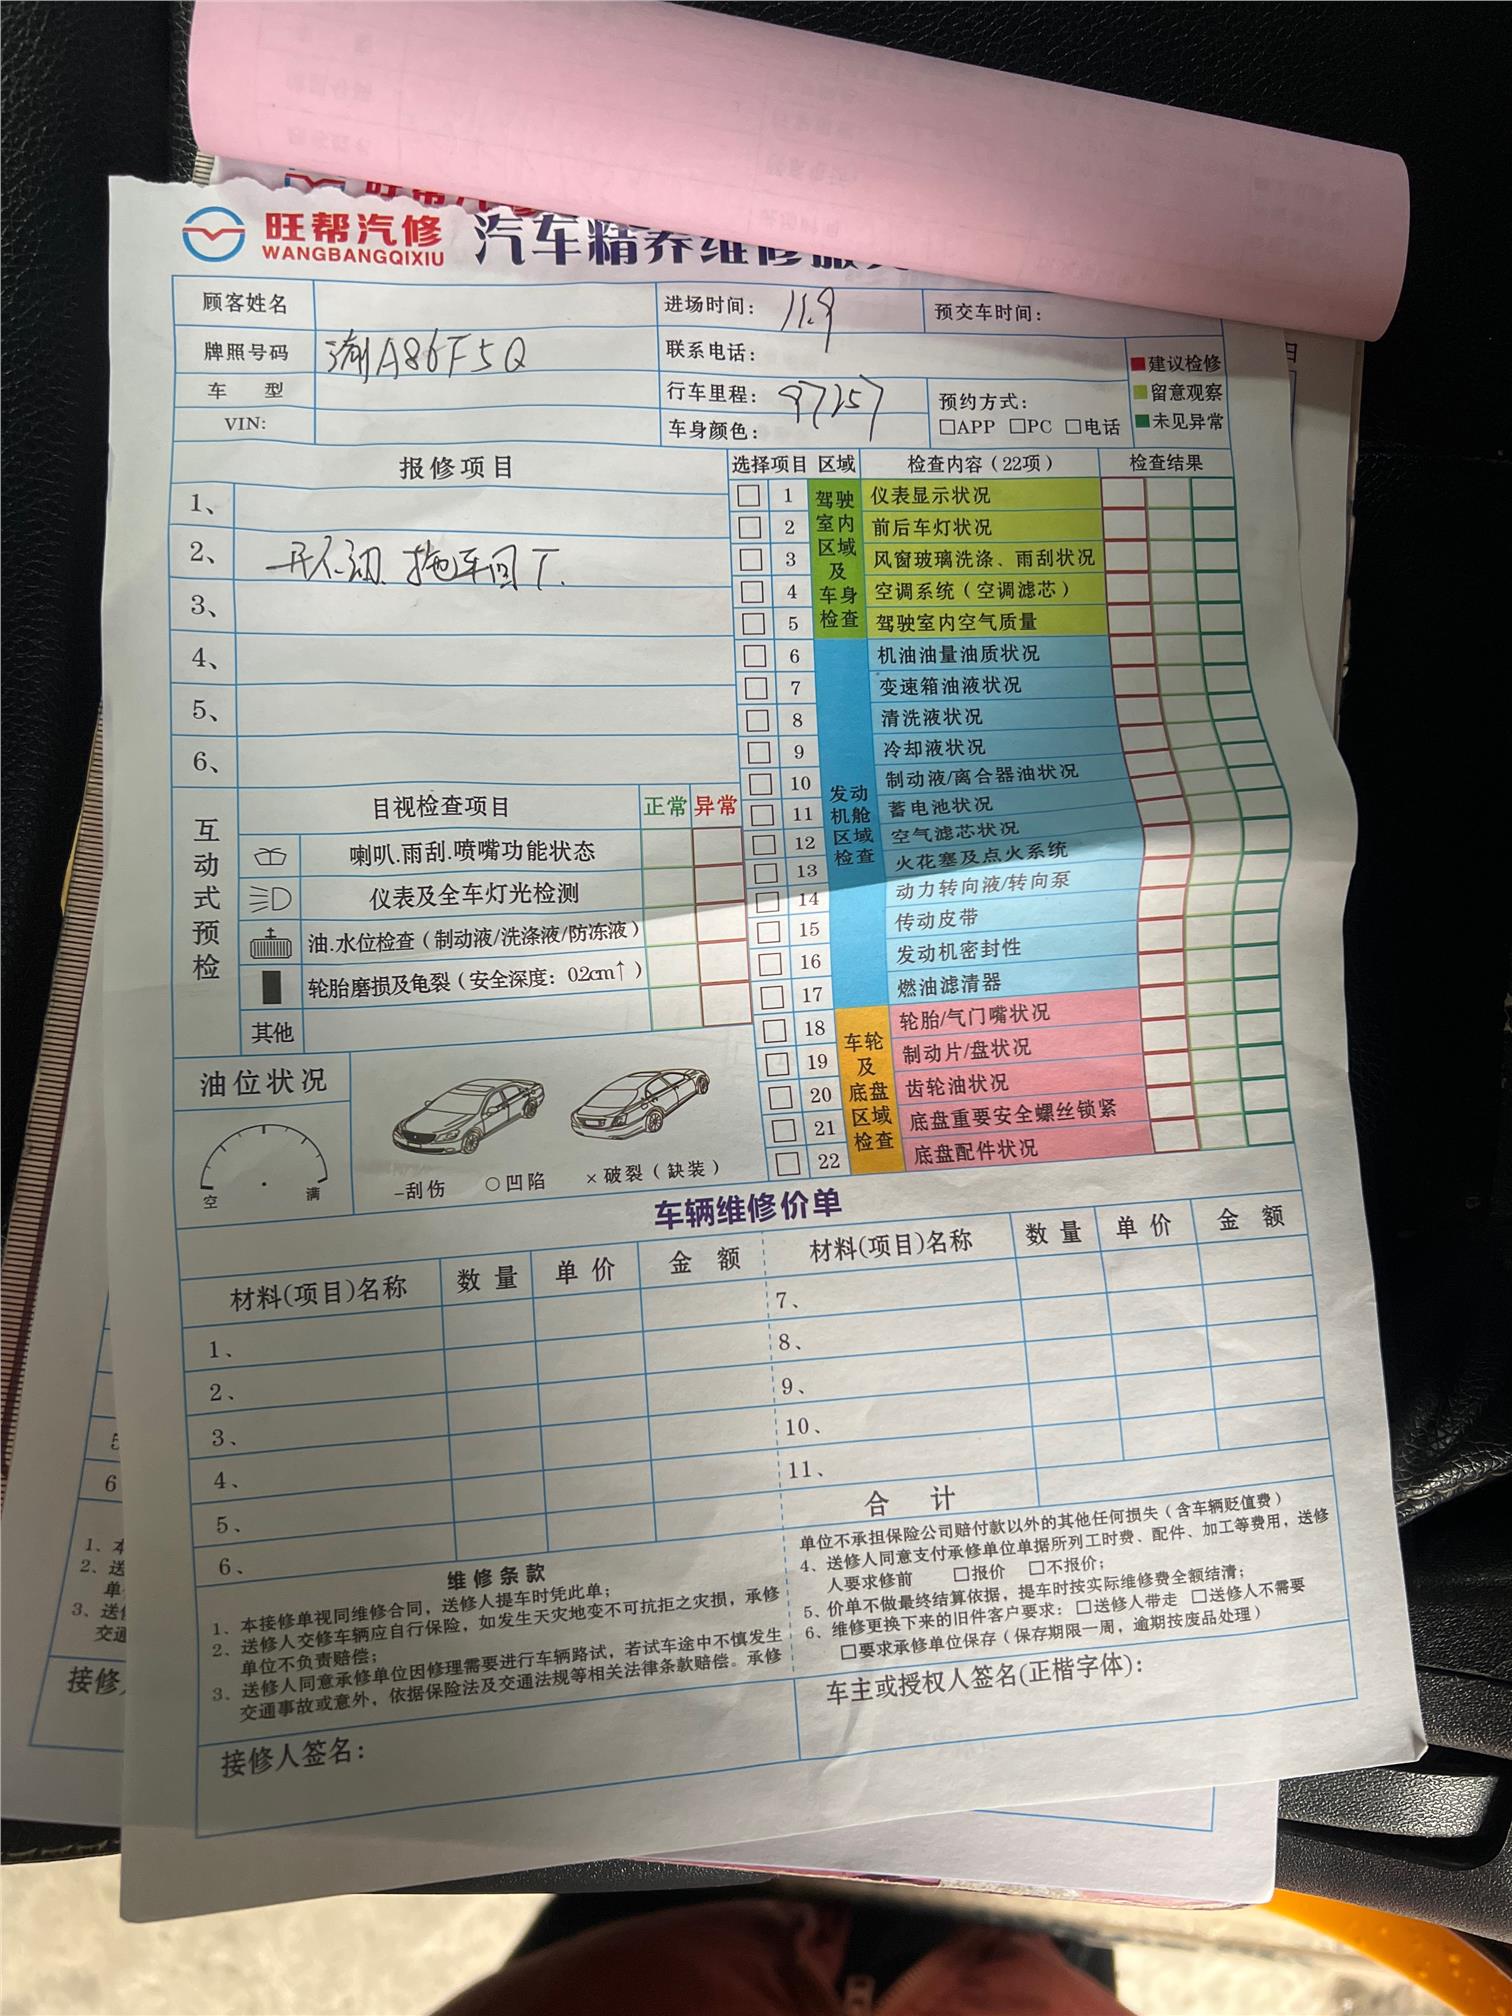 旺帮汽修
WANGBANGQIXIU
汽车精养维修
顾客姓名
进场时间: 11.9
预交车时间:
牌照号码 A86F5Q
联系电话:
车 型
行车里程: 97257
预约方式:
□APP □PC □电话
VIN:
车身颜色:
建议检修
留意观察
未见异常
报修项目
1、
2、 开不动.拖车回厂.
3、
4、
5、
6、
选择项目 区域 检查内容（22项） 检查结果
驾驶室内区域及车身检查
1 仪表显示状况
2 前后车灯状况
3 风窗玻璃洗涤、雨刮状况
4 空调系统（空调滤芯）
5 驾驶室内空气质量
发动机舱区域检查
6 机油油量油质状况
7 变速箱油液状况
8 清洗液状况
9 冷却液状况
10 制动液/离合器油状况
11 蓄电池状况
12 空气滤芯状况
13 火花塞及点火系统
14 动力转向液/转向泵
15 传动皮带
16 发动机密封性
17 燃油滤清器
车轮及底盘区域检查
18 轮胎/气门嘴状况
19 制动片/盘状况
20 齿轮油状况
21 底盘重要安全螺丝锁紧
22 底盘配件状况
互动式预检
目视检查项目 正常 异常
喇叭.雨刮.喷嘴功能状态
仪表及全车灯光检测
油.水位检查（制动液/洗涤液/防冻液）
轮胎磨损及龟裂（安全深度：02cm↑）
其他
油位状况
空 满
-刮伤 ○凹陷 ×破裂（缺装）
车辆维修价单
材料(项目)名称 数量 单价 金额
材料(项目)名称 数量 单价 金额
1、
2、
3、
4、
5、
6、
7、
8、
9、
10、
11、
合 计
维修条款
1、本接修单视同维修合同，送修人提车时凭此单；
2、送修人交修车辆应自行保险，如发生天灾地变不可抗拒之灾损，承修
单位不负责赔偿；
3、送修人同意承修单位因修理需要进行车辆路试，若试车途中不慎发生
交通事故或意外，依据保险法及交通法规等相关法律条款赔偿。承修
单位不承担保险公司赔付款以外的其他任何损失（含车辆贬值费）
4、送修人同意支付承修单位单据所列工时费、配件、加工等费用，送修
人要求修前 □报价 □不报价；
5、价单不做最终结算依据，提车时按实际维修费全额结清；
6、维修更换下来的旧件客户要求：□送修人带走 □送修人不需要
□要求承修单位保存（保存期限一周，逾期按废品处理）
接修人签名：
车主或授权人签名(正楷字体)：